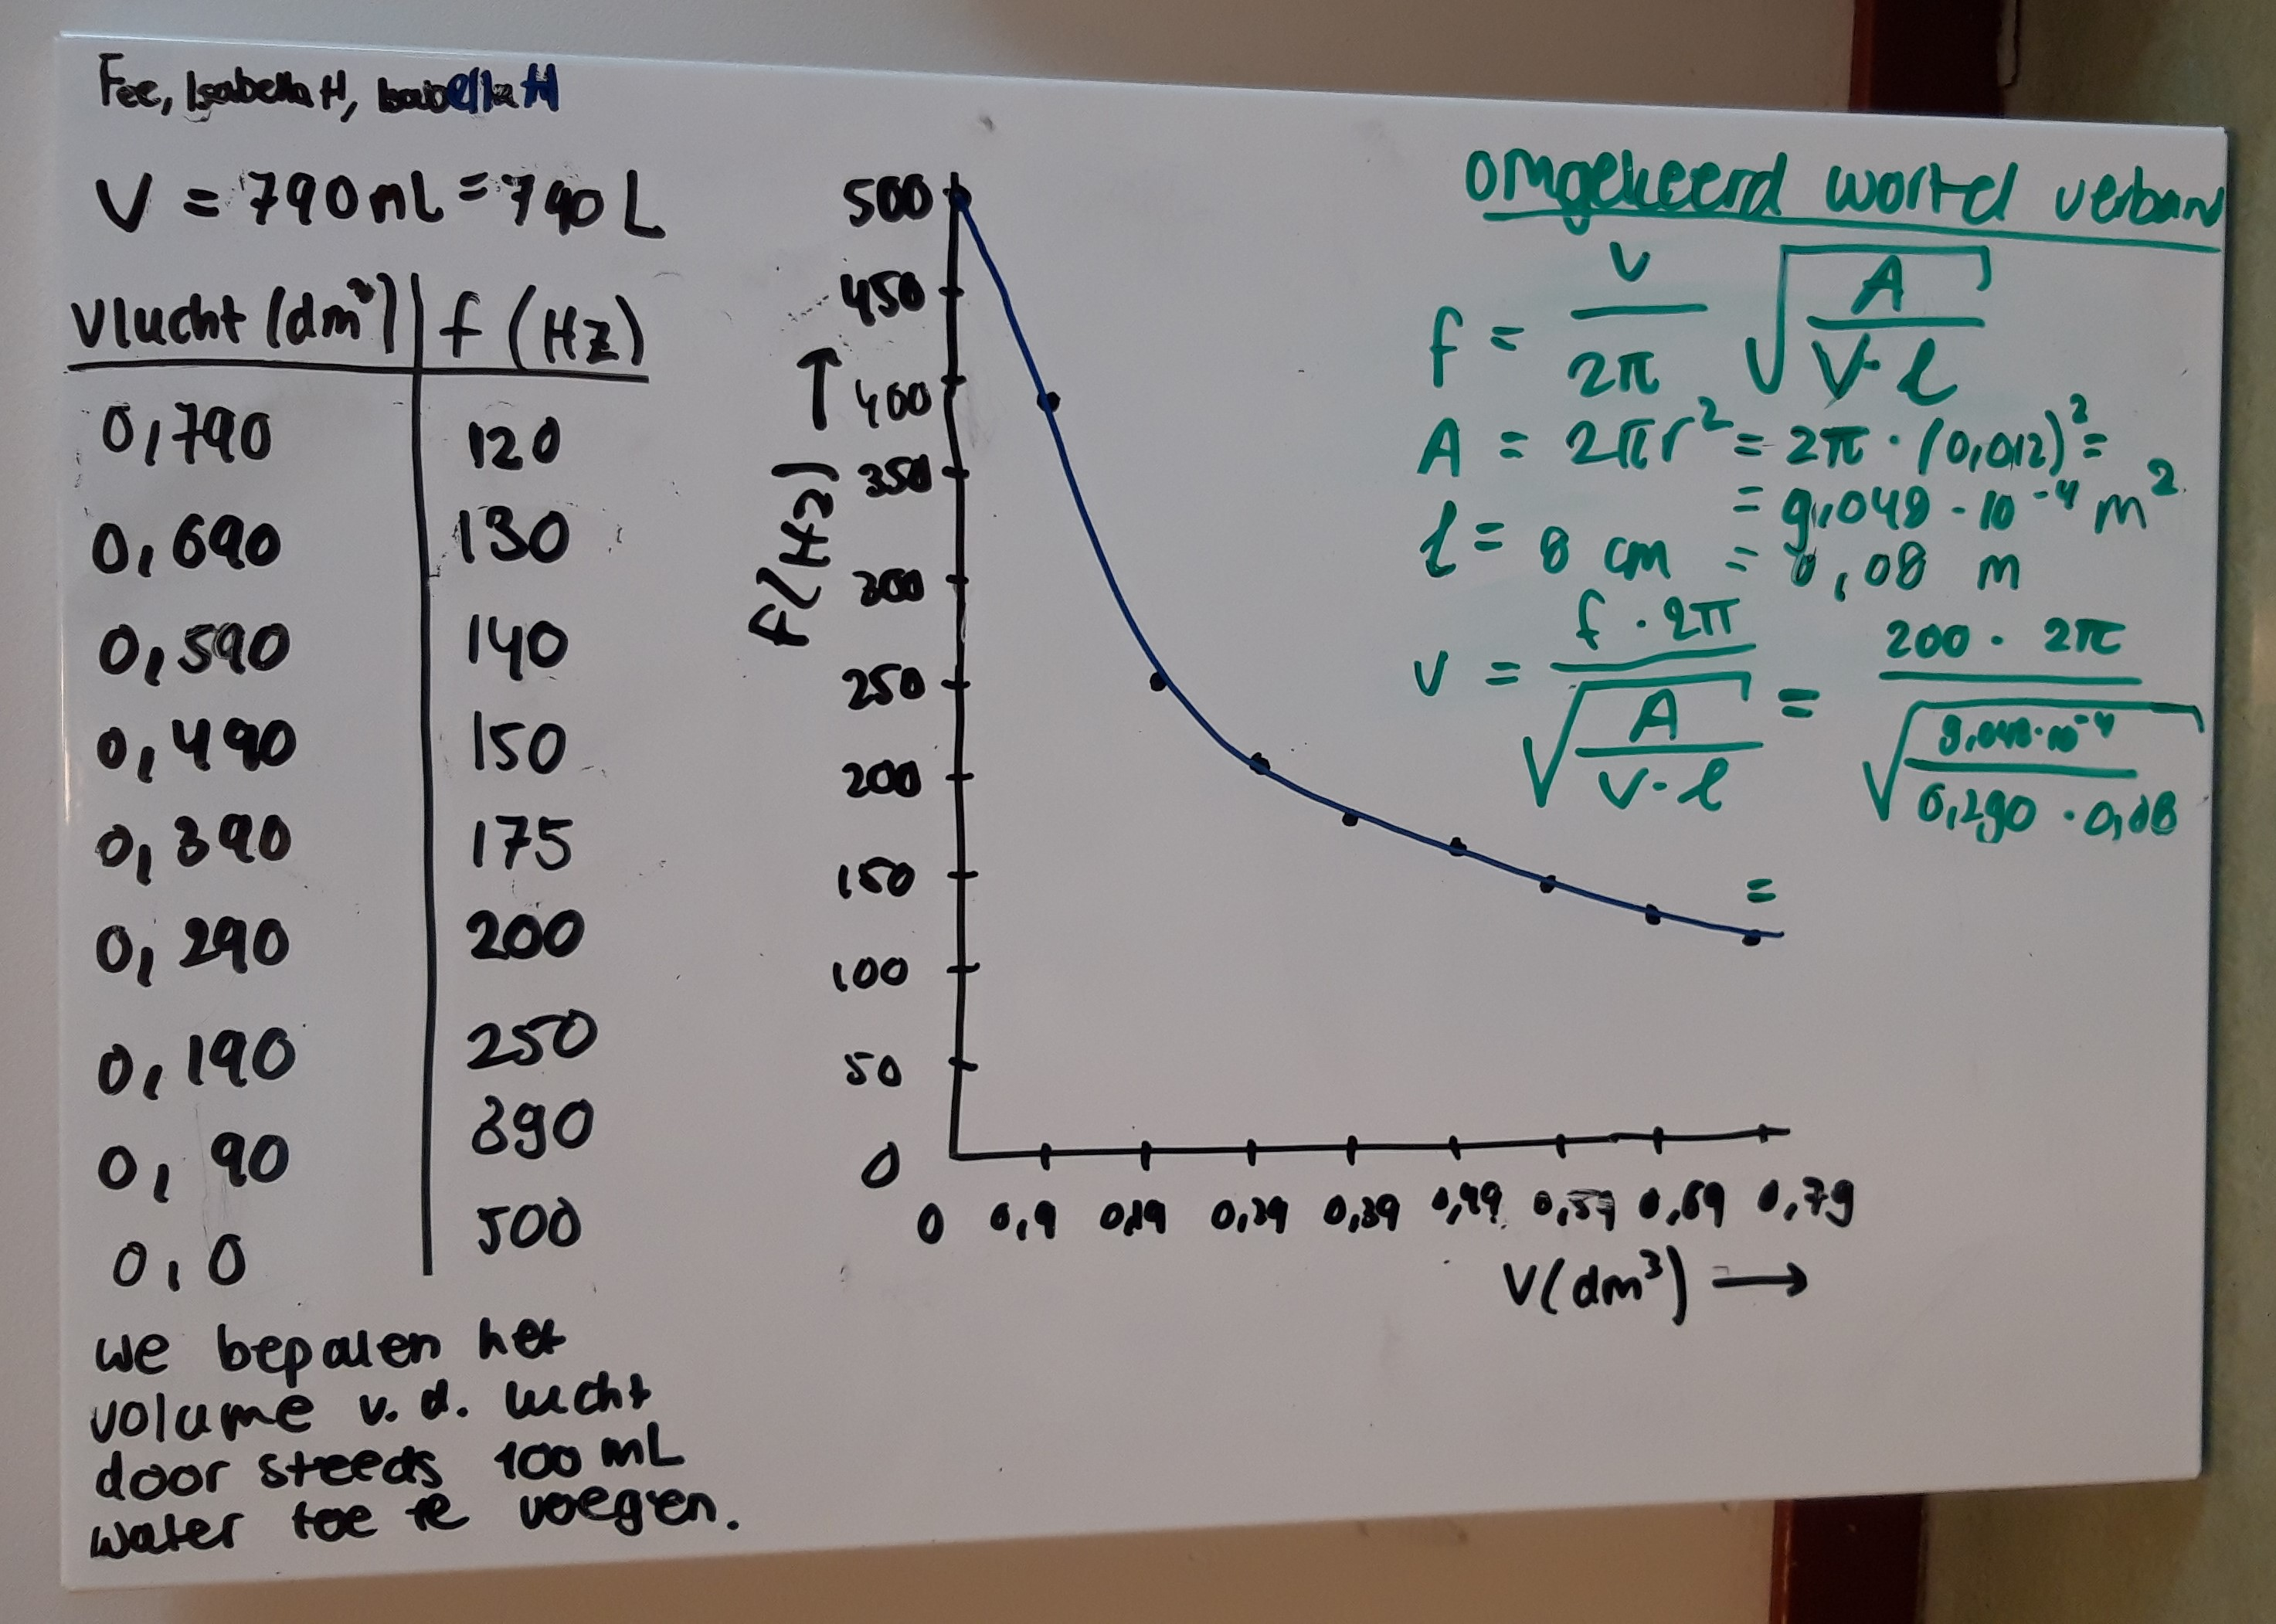 Fee, Isabella H, Isabella H
V = 790 mL = 790 L
Vlucht (dm³) f (Hz)
0,790 120
0,690 130
0,590 140
0,490 150
0,390 175
0,290 200
0,190 250
0,90 390
0,0 500
we bepalen het
volume v.d. lucht
door steeds 100 mL
water toe te voegen.
f (Hz) ↑
500
450
400
350
300
250
200
150
100
50
0
0 0,9 0,19 0,29 0,39 0,49 0,59 0,69 0,79
V (dm³) →
omgekeerd wortel verband
f = v / 2π √(A / V·l)
A = 2πr² = 2π · (0,012)² =
= 9,048 · 10⁻⁴ m²
l = 8 cm = 0,08 m
v = f · 2π / √(A / V·l) = 200 · 2π / √(9,048·10⁻⁴ / 0,290 · 0,08)
=